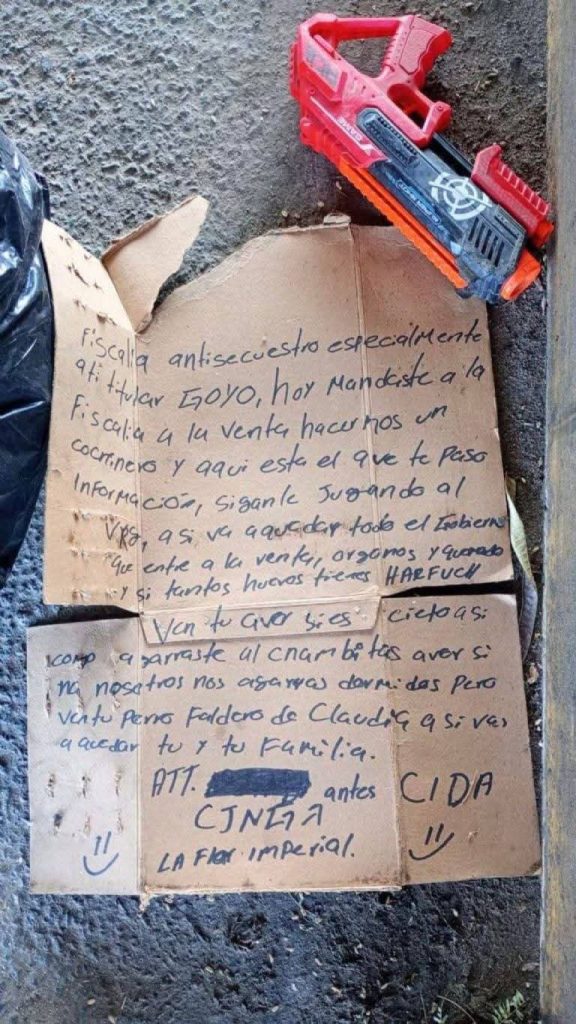 GAME
Fiscalia antisecuestro especialmente
ati titular GOYO, hoy Mandaste a la
Fiscalia a la venta hacernos un
cocninero y aqui esta el que te paso
Información, siganle Jugando al
Vrg, a si va a quedar todo el Gobierno
que entre a la venta, organos y
y si tantos huevos tienes HARFUCH
Ven tu aver si es cieto asi
como agarraste al cnambitas aver si
na nosotros nos agarras dormidos Pero
ven tu Perro Faldero de Claudia a si vas
a quedar tu y tu Familia.
ATT. antes CIDA
CJNGA
LA Flor imperial.